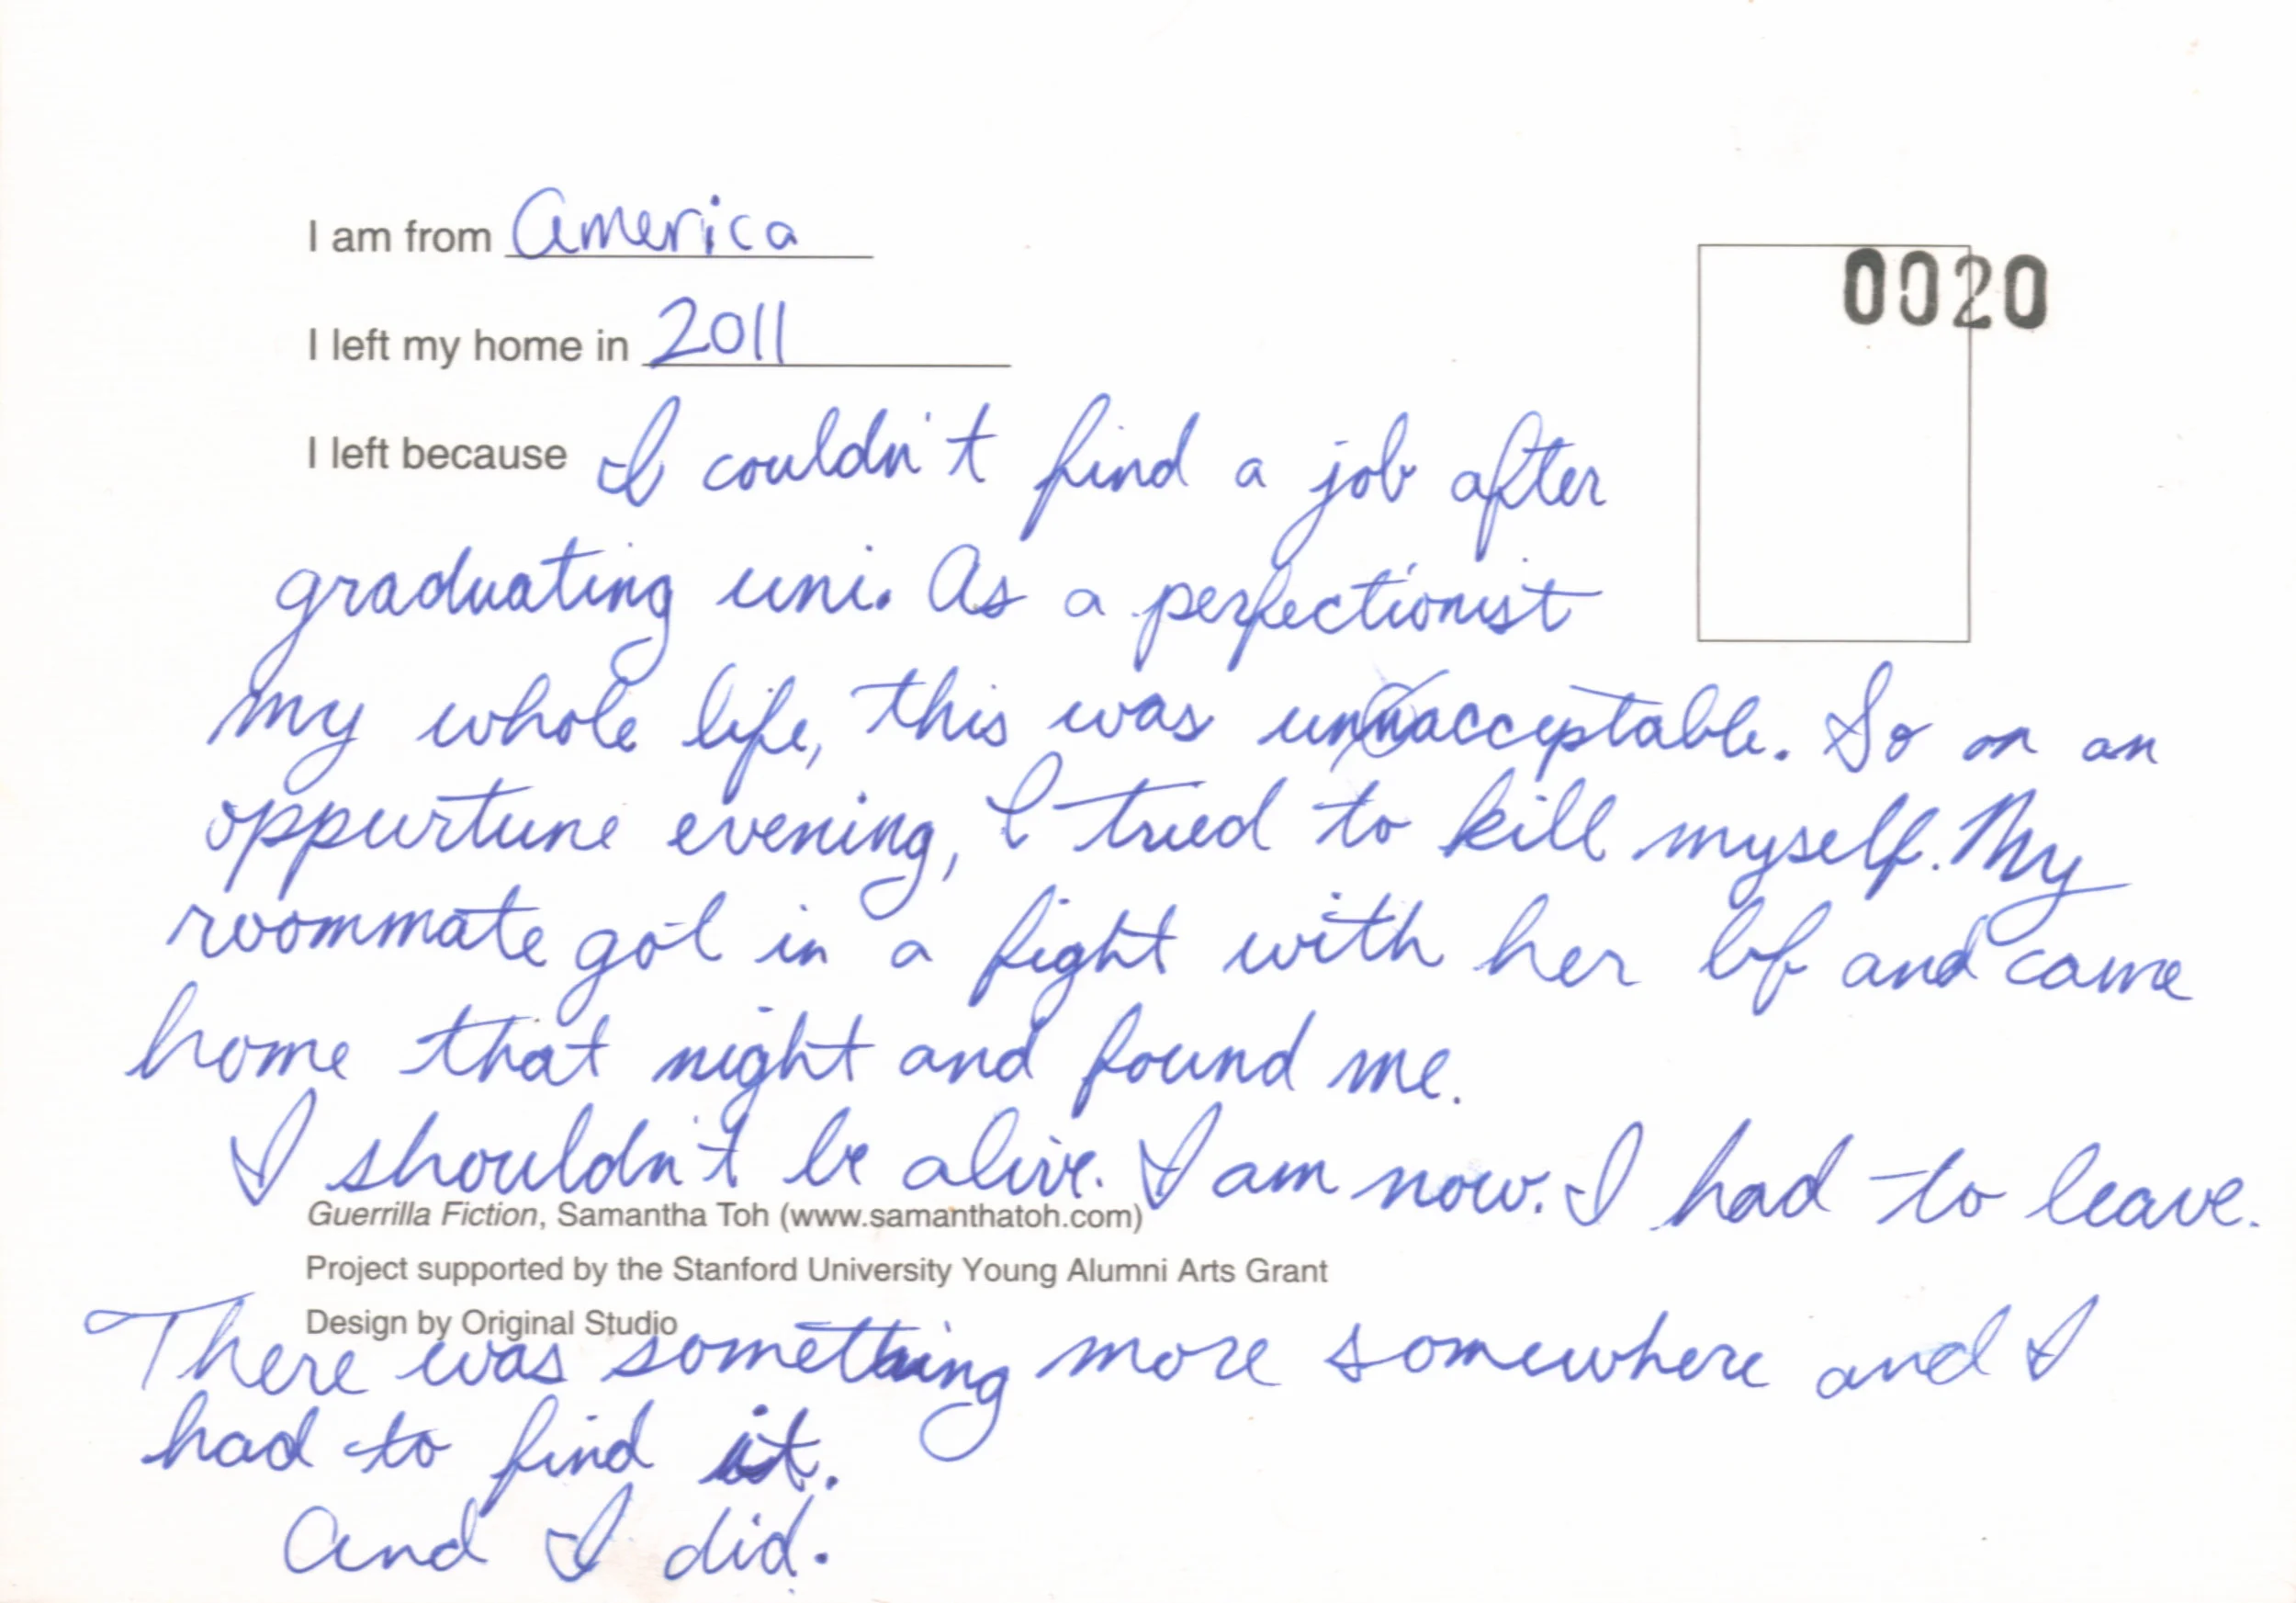 I am from America
0020
I left my home in 2011
I left because I couldn't find a job after
graduating uni. As a perfectionist
my whole life, this was unacceptable. So on an
oppurtune evening, I tried to kill myself. My
roommate got in a fight with her bf and came
home that night and found me.
I shouldn't be alive. I am now. I had to leave.
Guerrilla Fiction, Samantha Toh (www.samanthatoh.com)
Project supported by the Stanford University Young Alumni Arts Grant
Design by Original Studio
There was something more somewhere and I
had to find it.
And I did.